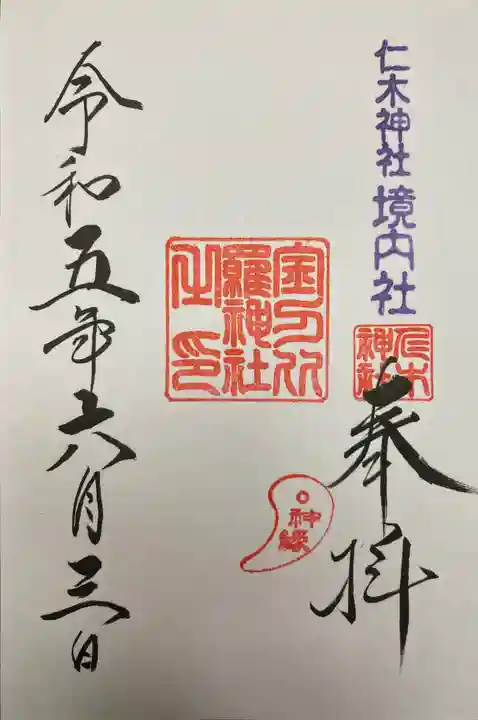 仁木神社 境内社
仁木
神社
奉拝
神縁
金刀比
羅神社
之印
令和五年六月三日